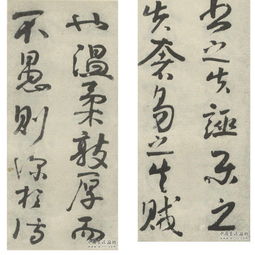 書之失誣樂之
失奢易之失賊
也溫柔敦厚而
不愚則深於詩